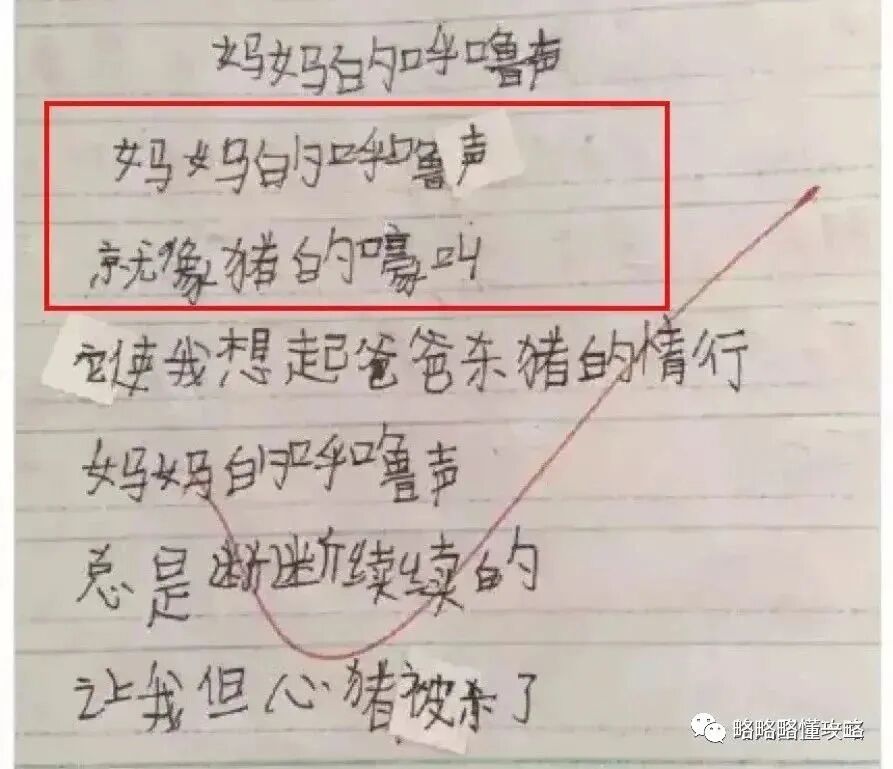 妈妈的呼噜声
妈妈的呼噜声
就像猪的嚎叫
它使我想起爸爸杀猪的情行
妈妈的呼噜声
总是断断续续的
让我但心猪被杀了
略略略懂攻略